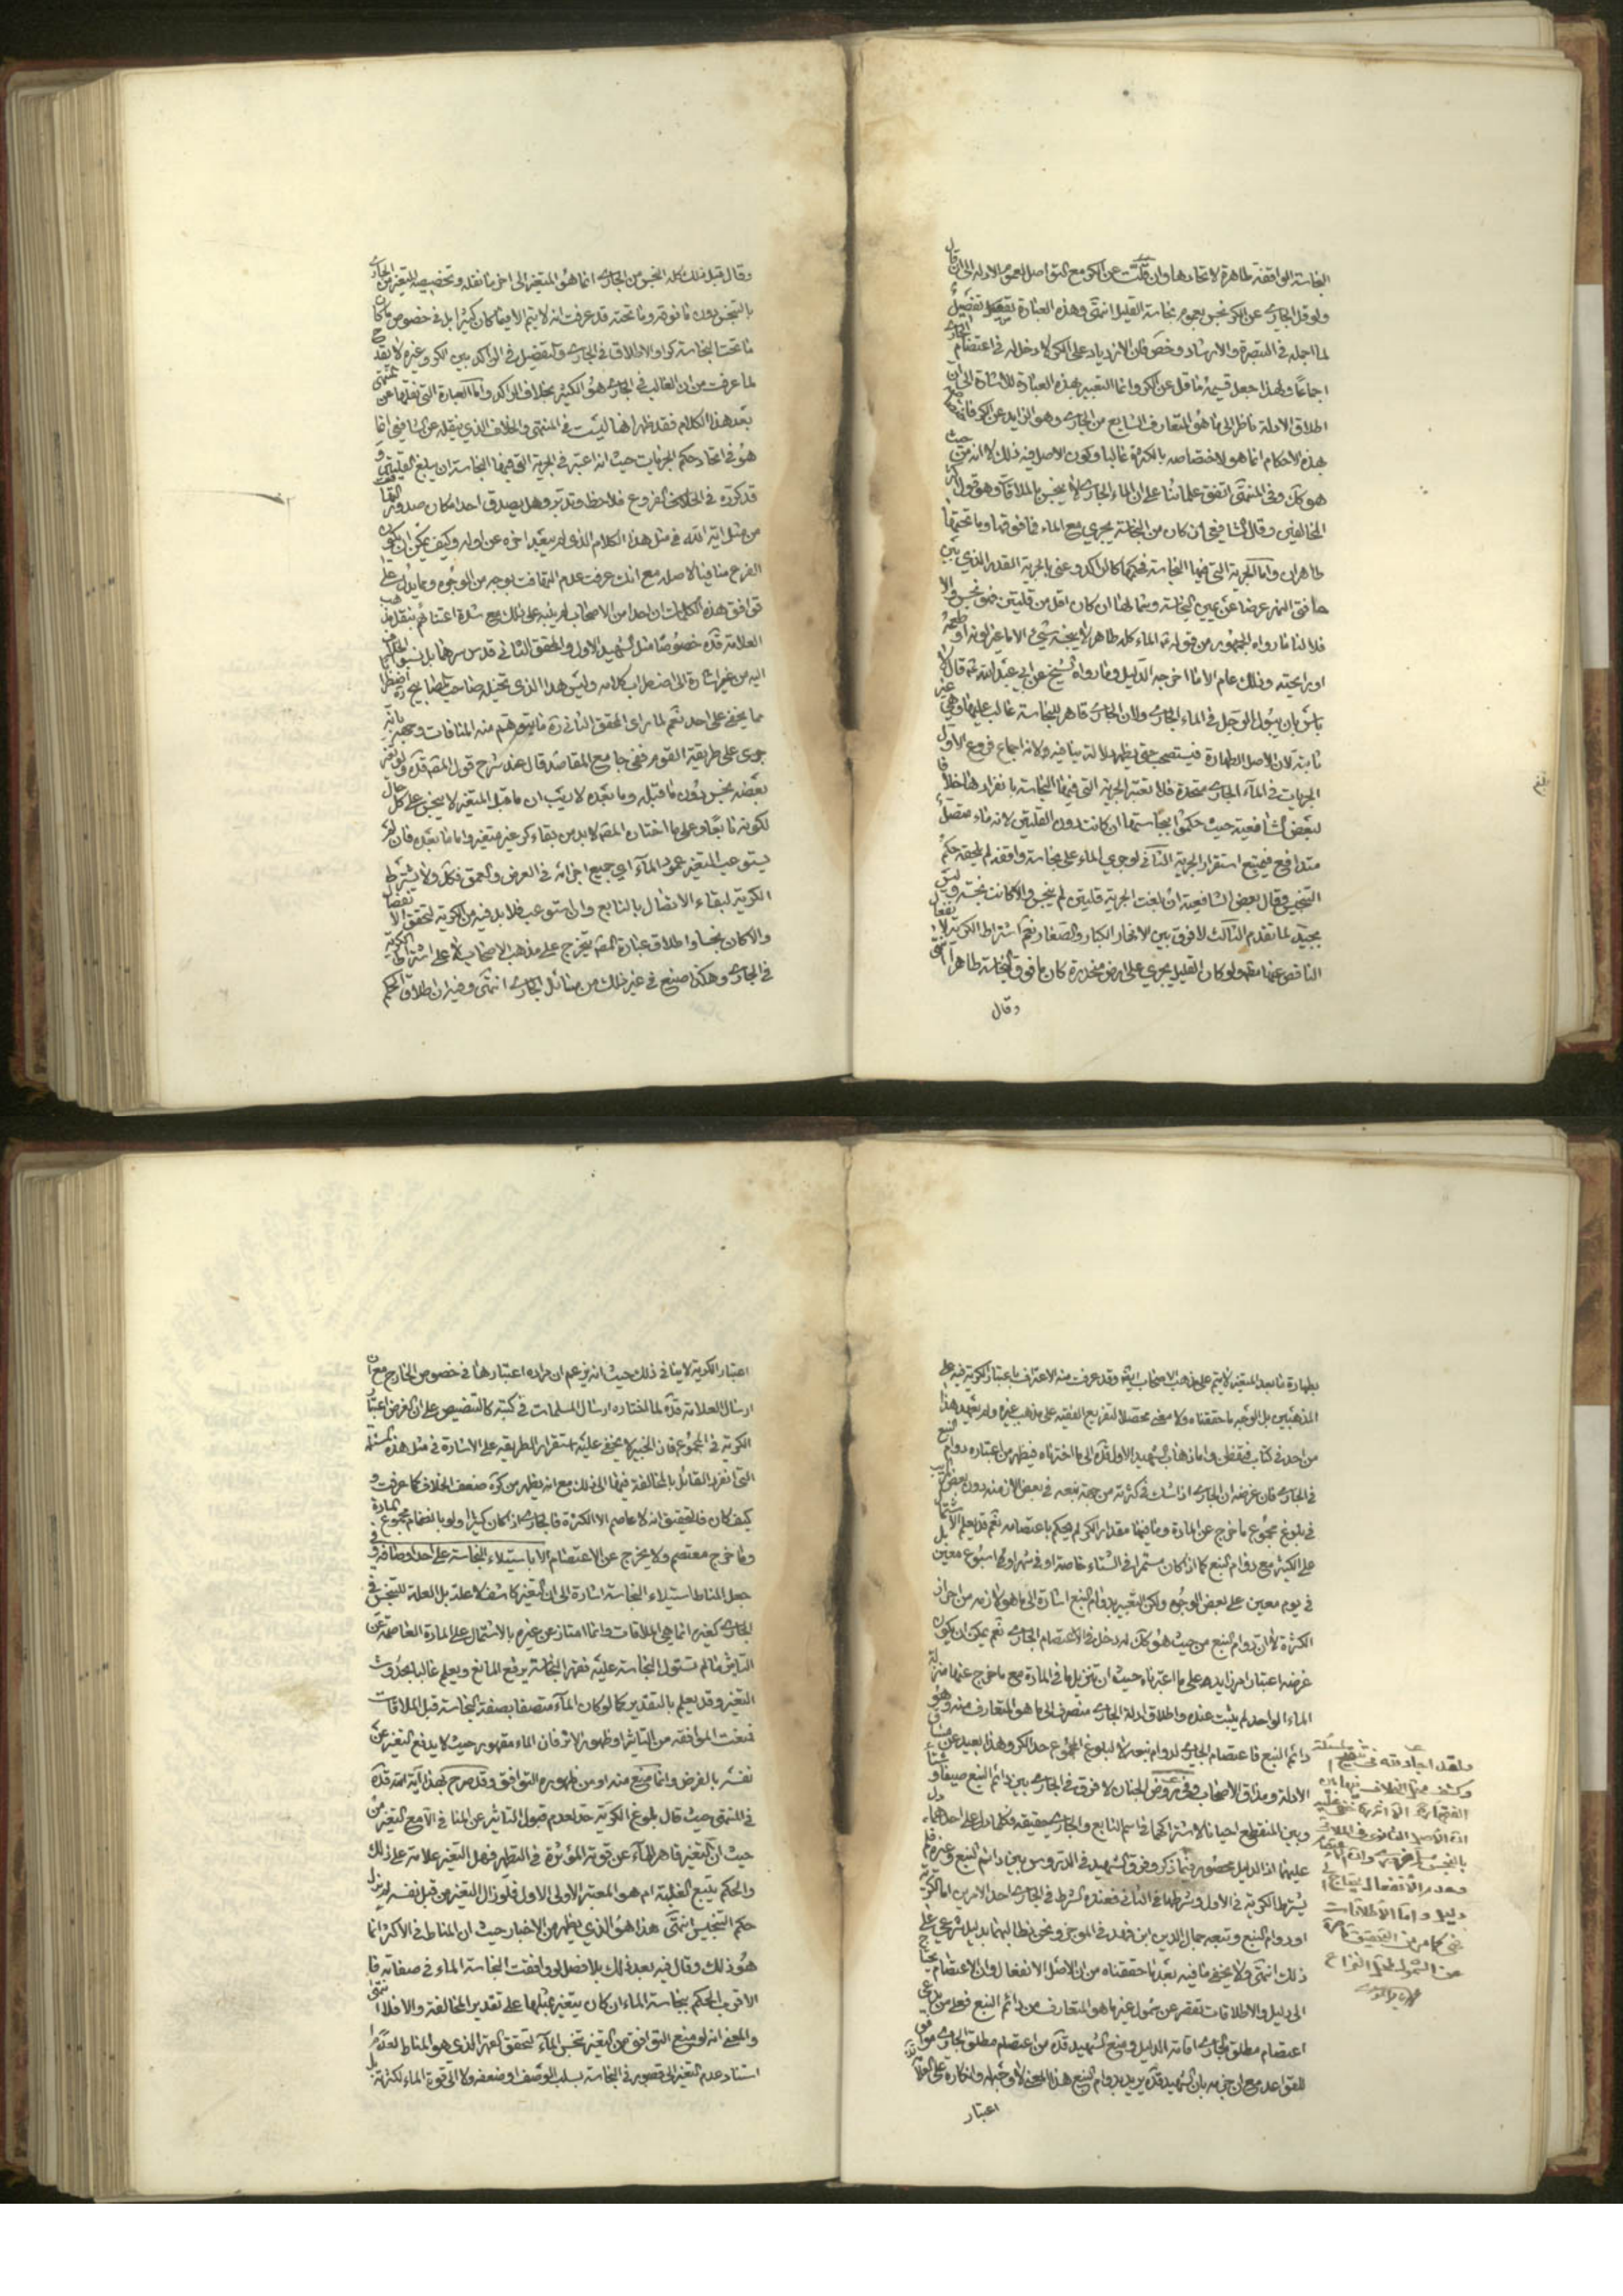 النجاسة الواقفة طاهرة لاتحادها وان قلت عن الكر مع التواصل لعموم الادلة الى ان قال
ولو قل الجاري عن الكر نجس لعموم نجاسة القليل انتهى وهذه العبارة تفصيل
لما اجمله في التبصرة والارشاد وخص فان الازدياد على الكر لا دخل له في اعتصام الجاري
اجماعا ولهذا جعل قسيمه ما قل عن الكر وانما التعبير بهذه العبارة للاشارة الى ان
اطلاق الادلة ناظر الى ما هو المتعارف الشايع من الجاري وهو الزايد عن الكر
هذه الاحكام انما هو لاختصاصه بالكثرة غالبا وكون الاصل فيه ذلك لا انه من حيث
هو كك وفي المنتهى اتفق علمائنا على ان الماء الجاري لا ينجس بالملاقاة وهو قول اكثر
المخالفين وقال الشافعي ان كان من النجاسة يجري مع الماء فما فوقها وما تحتها
طاهران واما الجرية التي فيها النجاسة فحكمها كالراكد وعنى بالجرية القدر الذي بين
حافتي النهر عرضا عن يمين النجاسة وشمالها ان كان اقل من قلتين فهو نجس والا
فلا لنا ما رواه الجمهور من قوله الماء كله طاهر لا ينجسه شيء الا ما غير لونه او طعمه
او رايحته وذلك عام الا ما اخرجه الدليل وما رواه الشيخ عن ابي عبد الله قال لا
باس بان يبول الرجل في الماء الجاري ولان الجاري قاهر للنجاسة غالب عليها وهي غير
ثابتة لان الاصل الطهارة فيستصحب حتى يظهر دلالة ينافيه ولانه اجماع فروع الاول
الجريات في الماء الجاري متحدة فلا تعتبر الجرية التي فيها النجاسة بانفرادها خلافا
لبعض الشافعية حيث حكموا بنجاستها ان كانت دون القلتين لانه ماء متصل
متدافع فيمتنع استقرار الجرية الثاني لو جرى الماء على نجاسة واقفة لم يلحقه حكم
التنجيس وقال بعض الشافعية ان بلغت الجرية قلتين لم ينجس والا كانت نجسة وليس
بجيد لما تقدم الثالث لا فرق بين الانهار الكبار والصغار نعم اشتراط الكرية لانفعال
الناقص عنها ولو كان القليل يجري على ارض منحدرة كان ما فوق النجاسة طاهرا انتهى
وقال
وقال قبل ذلك كله النجس من الجاري انما هو المتغير الى اخر ما نقله وتخصيصه المتغير من الجاري
بالتنجس دون ما فوقه وما تحته قد عرفت انه لا يتم الا فيما كان كثيرا بل في خصوص ما كان
ما تحت النجاسة كرا والاطلاق في الجاري والتفصيل في الراكد بين الكر وغيره لا يقدح
لما عرفت من ان الغالب في الجاري هو الكثير بخلاف الراكد واما العبارة التي نقلها عن المنتهى
بعد هذا الكلام فقد ظهر انها ليست في المنتهى والخلاف الذي ينقله عن الشافعي انما
هو في اتحاد حكم الجريات حيث انه اعتبر في الجرية التي فيها النجاسة ان يبلغ القلتين و
قد كرره في الفروع فلاحظ وتدبر وهل يصدق احد امكان صدور التهافت
من مثل اية الله في مثل هذا الكلام الذي لم يبعد اخره عن اوله وكيف يمكن ان يكون
الفرع منافيا لاصله مع انك عرفت عدم التهافت بوجه من الوجوه ومما يدل على
توافق هذه الكلمات ان احدا من الاصحاب لم ينبه على ذلك مع شدة اعتنائهم بنقل مذهب
العلامة قده خصوصا مثل الشهيد الاول والمحقق الثاني قدس سرهما بل نسبوا الحكم
اليه من غير اشارة الى اضطراب كلامه وليس هذا الذي تخيله صاحب المصابيح ره اضطرابا
مما يخفى على احد نعم لما راى المحقق الثاني ره ما يتوهم منه المنافات وجهه بانه
جرى على طريقة القوم ففي جامع المقاصد قال عند شرح قول المصه قده ولو تغير
بعضه نجس دون ما قبله وما بعده لا ريب ان ما قبل المتغير لا ينجس على كل حال
لكونه نابعا وعلى ما اختاره المصه لا بد من بقاء كر غير متغير واما ما بعده فان لم
يستوعب المتغير عمود الماء اعني جميع اجزائه في العرض والعمق فكك ولا يشترط
الكرية لبقاء الاتصال بالنابع وان استوعب فلا بد فيه من الكرية لتحقق الانفصال
والا كان نجسا واطلاق عبارة المصه يتخرج على مذهب الاصحاب لا على اشتراط الكرية
في الجاري وهكذا صنع في غير ذلك من مسائل الجاري انتهى وفيه ان اطلاق الحكم
بطهارة ما بعد المتغير لا يتم على مذهب الاصحاب ايضا وقد عرفت منه الاعتراف باعتبار الكرية فيه على
المذهبين بل الوجه ما حققناه ولا معنى محصلا لتفريع الفقيه على مذهب غيره ولم يعهد هذا
من احد في كتاب فقط واما ذهاب الشهيد الاول قده الى ما اخترناه فيظهر من اعتباره دوام النبع
في الجاري فان غرضه ان الجاري اذا شك في كثرته من جهة نبعه في بعض الازمنة دون بعض
في بلوغ مجموع ما خرج عن المادة وما فيها مقدار الكر لم يحكم باعتصامه نعم قد يعلم الاشتمال
على الكثير مع دوام النبع كما اذا كان مستمرا في الشتاء خاصة او في شهر او في اسبوع معين بل
في يوم معين على بعض الوجوه ولكن التعبير بدوام النبع اشارة الى ما هو لازمه من احراز
الكثرة لا ان دوام النبع من حيث هو كك له دخل في الاعتصام الجاري نعم يمكن ان يكون
غرضه اعتبار امر زايد على ما اعتبرناه حيث ان تنزيل ما في المادة مع ما خرج عنها منزلة
الماء الواحد لم يثبت عنده واطلاق ادلة الجاري منصرف الى ما هو المتعارف منه وهو
دائم النبع فاعتصام الجاري لدوام نبعه لا لبلوغ المجموع حد الكر وهذا بعيد عن مساق
الادلة ومذاق الاصحاب وفي روض الجنان لا فرق في الجاري بين دائم النبع صيفا وشتاء
وبين المنقطع احيانا لاشتراكهما في اسم النابع والجاري حقيقة فكلما دل على احدهما دل
عليهما اذ الدليل محصور فيما ذكر وفرق الشهيد في الدروس بين دائم النبع وغيره فلم
يشترط الكرية في الاول وشرطها في الثاني فعنده الشرط في الجاري احد الامرين اما الكرية
او دوام النبع وتبعه جمال الدين ابن فهد في الموجز ونحن نطالبهما بدليل شرعي على
ذلك انتهى ولا يخفى ما فيه بعد ما حققناه من ان الاصل الانفعال وان الاعتصام يحتاج
الى دليل والاطلاقات تقصر عن شمول غير ما هو المتعارف من دائم النبع فعلى من يدعي
اعتصام مطلق الجاري اقامة الدليل ومنع الشهيد قده من اعتصام مطلق الجاري موافق
للقواعد مع ان جزمه بان الشهيد قده يريد بدوام النبع هذا المعنى لا وجه له وانكاره على العلامة
اعتبار
ولقد اجاد فقه في تنقيح المسئلة
وكشف عن الخلاف فيها
انه الاصل القانوني في الملاقات
دليل واما الاطلاقات
فهي كما مر من التحقيق قاصرة
عن الشمول لمحل النزاع
اعتبار الكرية لا ينافي ذلك حيث انه يزعم ان مراده اعتبارها في خصوص الخارج مع ان
ارسال العلامة قده لما اختاره ارسال المسلمات في كتبه كالتنصيص على ان الغرض اعتبار
الكرية في المجموع فان الخبير لا يخفى عليه استقرار الطريقة على الاشارة في مثل هذه المسئلة
التي انفرد القائل بالمخالفة فيها الى ذلك مع انه يظهر من كره ضعف الخلاف كما عرفت و
كيف كان فالتحقيق انه لا عاصم الا الكثرة فالجاري اذا كان كثيرا ولو بانضمام مجموع المادة
وما خرج معتصم ولا يخرج عن الاعتصام الا باستيلاء النجاسة على احد اوصافه وفي
جعل المناط استيلاء النجاسة اشارة الى ان التغير كاشف لا علة بل العلة للتنجس في
الجاري كغيره انما هي الملاقات وانما امتاز عن غيره بالاشتمال على المادة العاصمة عن
التاثر ما لم تستول النجاسة عليه فقهر النجاسة يرفع المانع ويعلم غالبا بحدوث
التغير وقد يعلم بالتقدير كما لو كان الماء متصفا بصفة النجاسة قبل الملاقات
فمنعت الموافقة من التاثر او ظهور الاثر فان الماء مقهور حيث لا يدفع التغير عن
نفسه بالفرض وانما منع منه او من ظهوره التوافق وقد صرح بهذا اية الله قده
في المنتهى حيث قال بلوغ الكرية حد لعدم قبول التاثير عن الملاقي الا مع التغير من
حيث ان التغير قاهر للماء عن قوته المؤثرة في التطهير فهل التغير علامة على ذلك
والحكم يتبع الغلبة ام هو المعتبر الاولى الاول فلو زال التغير من قبل نفسه لم يزل
حكم التنجيس انتهى هذا هو الذي يظهر من الاخبار حيث ان المناط في الاكثر انما
هو ذلك وقال فيه بعد ذلك بلا فصل لو وافقت النجاسة الماء في صفاته فا
لاقرب الحكم بنجاسة الماء ان كان يتغير بمثلها على تقدير المخالفة والا فلا انتهى
والمعنى انه لو منع التوافق من التغير نجس الماء لتحقق القهر الذي هو المناط لعدم
استناد عدم التغير الى قصور في النجاسة بسلب الوصف او ضعفه ولا الى قوة الماء لكثرته بل